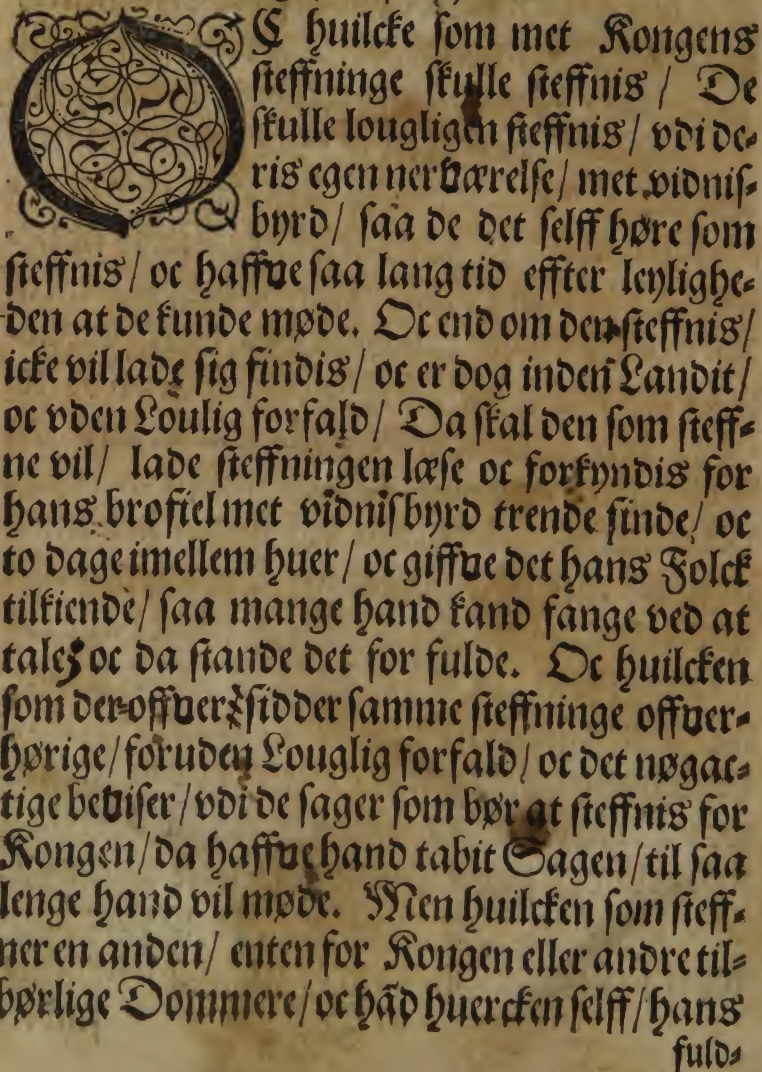 OC huilcke som met Kongens
steffninge skulle steffnis / De
skulle lougligen steffnis / vdi de-
ris egen nerværelse / met vidnis-
byrd / saa de det selff høre som
steffnis / oc haffve saa lang tid effter leylighe-
den at de kunde møde. Oc end om den steffnis /
icke vil lade sig findis / oc er dog inden Landit /
oc vden Loulig forfald / Da skal den som steff-
ne vil / lade steffningen læse oc forkyndis for
hans brofiel met vidnisbyrd trende sinde / oc
to dage imellem huer / oc giffve det hans Folck
tilkiende / saa mange hand kand fange ved at
tale / oc da stande det for fulde. Oc huilcken
som der offver sidder samme steffninge offver-
hørige / foruden Louglig forfald / oc det nøgac-
tige beviser / vdi de sager som bør at steffnis for
Kongen / da haffve hand tabit Sagen / til saa
lenge hand vil møde. Men huilcken som steff-
ner en anden / enten for Kongen eller andre til-
børlige Dommere / oc hãd huercken selff / hans
fuld-